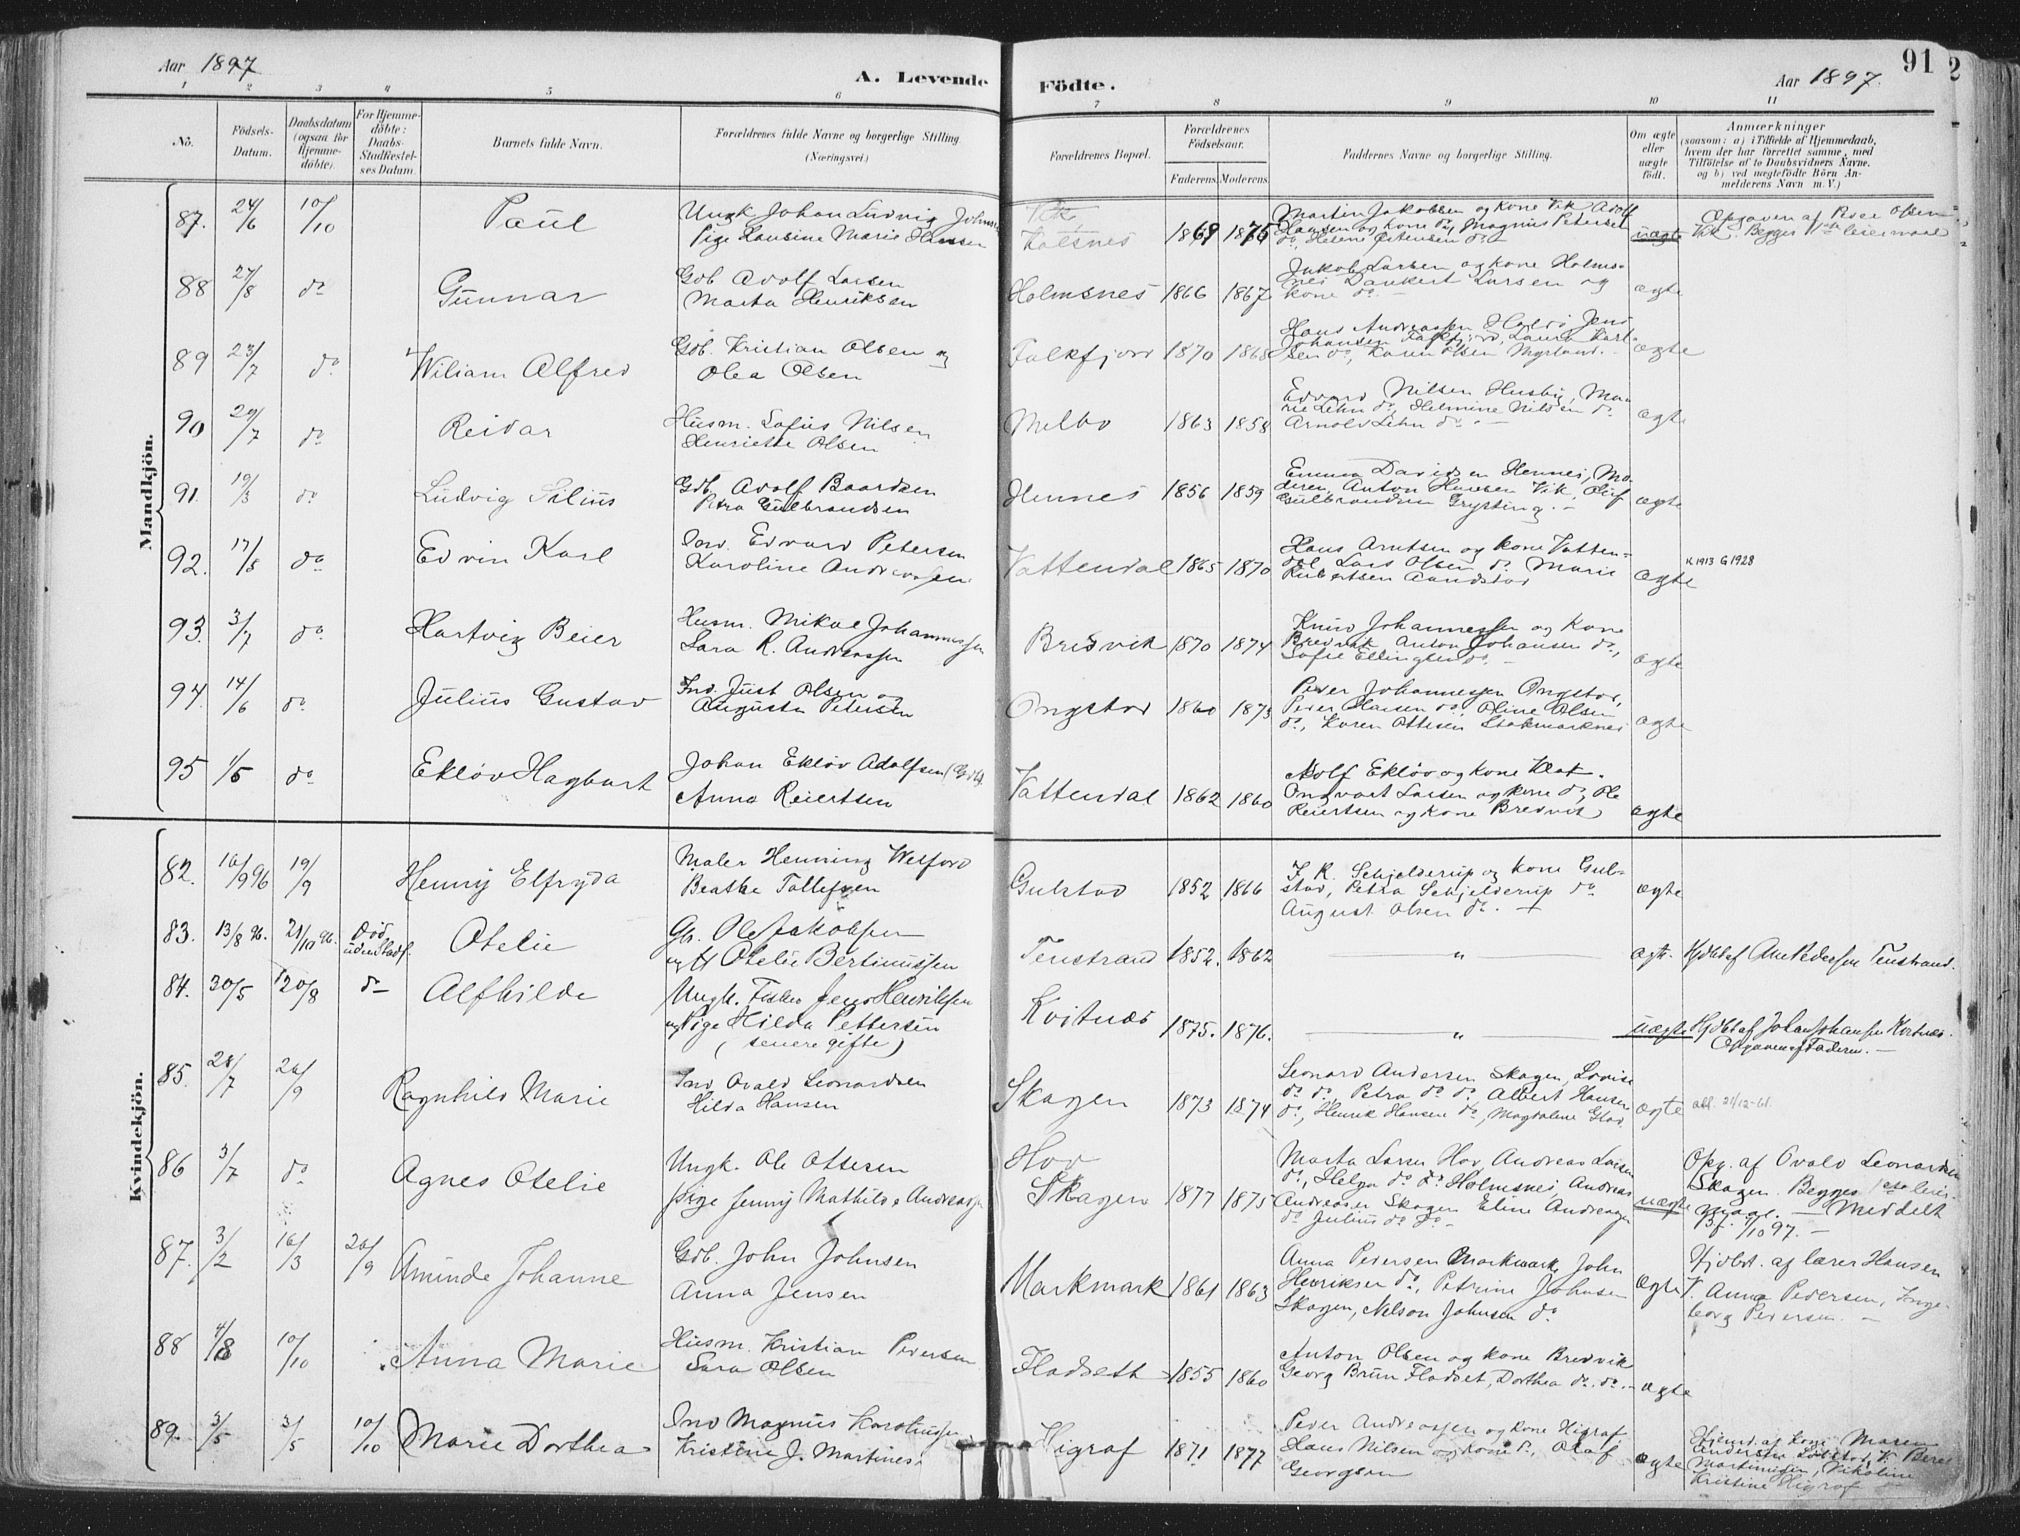 Aar 1897
A. Levende
Födte.
Aar 1897.
91
2
1 2 3 4 5 6 7 8 9 10 11
No.
Födsels-
Datum.
Daabsdatum
(ogsaa for
Hjemme-
döbte).
For Hjemme-
döbte:
Daabs-
Stadfæstel-
ses Datum.
Barnets fulde Navn.
Forældrenes fulde Navne og borgerlige Stilling
(Næringsvei)
Forældrenes Bopæl.
Forældrenes
Födselsaar.
Faderens. Moderens.
Faddernes Navne og borgerlige Stilling.
Om ægte
eller
uægte
födt.
Anmærkninger
(saasom: a) i Tilfælde af Hjemmedaab,
hvem der har forrettet samme, med
Tilföielse af to Daabsvidners Navne,
og b) ved uægtefödte Börn An-
melderens Navn m. V.)
Mandkjön.
87. 24/6 10/10 Paul
Ungk Johan Ludvig Johnsen
Pige Hansine Marie Hansen
Vik
1869 1875
Martin Jakobsen og kone Vik Adolf
Hansen og kone do, Magnus Petersen
do, Helene Petersen do
uægte
Opgaven af Peder Olsen
Vik. Begges 1ste leiermaal
88 27/8 do Gunnar
Gdb Adolf Larsen
Marta Henriksen
Holmsnes 1866 1867
Jakob Larsen og kone Holms-
nes Dankert Larsen og
kone do. —
ægte
89 23/7 do Wiliam Alfred
Gdb. Kristian Olsen og
Olea Olsen
Falkfjord 1870 1868
Hans Andreassen Jens
Johansen Falkfjord, Laura Karl-
sen do, Karen Olsen Myrland. —
ægte
90 29/7 do Reidar
Husm. Sofus Nilsen
Henriette Olsen
Melbo 1863 1858
Edvard Nilsen Husby, Ma-
rie Lehn do, Helmine Nilsen do
Arnold Lehn do. —
ægte
91. 19/3 do Ludvig Julius
Gdb. Adolf Baardsen
Petra Gulbrandsen
Hennes 1856 1859
Emma Davidsen Hennes, Mo-
deren, Anton Hansen Vik, Oluf
Gulbrandsen Grytting. —
ægte
92. 17/5 do Edvin Karl
Ind. Edvard Petersen
Karoline Andreassen
Vattendal 1865 1870
Hans Arntsen og kone Vatten-
dal Lars Olsen do Marie
Robertsen Aandstad
ægte
K 1913 G 1928
93. 3/7 do Hartvig Beier
Husm. Mikal Johannessen
Sara R. Andreassen
Bredvik 1870 1874
Knud Johannessen og kone
Bredvik Anton Johansen do,
Sofie Ellingsen do. —
ægte
94. 14/6 do Julius Gustav
Ind. Just Olsen og
Augusta Petersen
Ongstad 1860 1873
Peder Johannessen Ongstad,
Peder Hansen do, Oline Olsen
do, Karen Ottesen Stokmarknes
ægte
95 1/5 do Ekløv Hagbart
Johan Ekløv Adolfsen (Gdb)
Anna Reiertsen
Vattendal 1862 1860
Adolf Ekløv og kone
Ongvart Larsen og kone do, Ole
Reiertsen og kone Bredvik
ægte
Kvindekjön.
82. 16/9 96 19/9 Henny Elfryda
Maler Henning Welford
Beathe Tollefsen
Gulstad 1852 1866
J. K. Schjelderup og kone Gul-
stad, Petra Schjelderup do
August Olsen do. —
ægte
83. 13/8 96. 21/10 96. Död
uden Stadf. Otelie
Gb. Ole Jakobsen
og H Otelie Bertinussen
Tenstrand 1852. 1862
— " —
ægte. Hjdbt af Ane Pedersen Tenstrand.
84. 30/5 20/8 do Alfhilde
Ungk. Fisker Jens Henriksen
og Pige Hilda Pettersen
(senere gifte)
Kvitnæs
1875. 1876.
— " —
uægte Hjdbt af Johan Johansen Kvitnæs.
Opgaven af Faderen. —
85. 28/7 26/9 Ragnhild Marie
Ind Ovald Leonardsen
Hilda Hansen
Skagen 1873 1874
Leonard Andersen Skagen, Lovise
do do, Petra do do, Albert Hansen
do, Henrik Hansen do, Magdalene
ægte
att. 21/12-61.
86 3/7 do Agnes Otelie
Ungk. Ole Ottesen
pige Jenny Mathilde Andreassen
Hov
Skagen 1877 1875
Marta Larsen Hov, Andreas Larsen
do, Helga do do Holmsnes, Andreas
Andreassen Skagen Eline Andreassen
do Julius do do —
uægte
Opg. af Ovald Leonardsen
Skagen. Begges 1ste leier-
maal. — Meddelt
87. 3/2 16/3 26/9 Aminde Johanne
Gdb. John Johnsen
Anna Jensen
Markmark 1861 1863
Anna Pedersen Markmark, John
Henriksen do, Petrine Johnsen
Skagen, Nelson Johnsen do
ægte
Hjdbt. af lærer Hansen
V. Anna Pedersen, Inge-
borg Pedersen. —
88 4/8 10/10 Anna Marie
Husm. Kristian Pedersen
Sara Olsen
Fladseth 1855 1860
Anton Olsen og kone Bredvik
Georg Brun Fladset, Dorthea do. do. —
ægte
89. 3/5 3/5 10/10 Marie Dorthea
Ind Magnus
Kristine J. Martines
Higraf 1871 1877
Peder Andreassen og kone Higraf
Hans Nilsen og kone do, Olaf
Georgsen
ægte
Hjemd. af kone Maren
Martinussen, Nikoline
Kristine Higraf